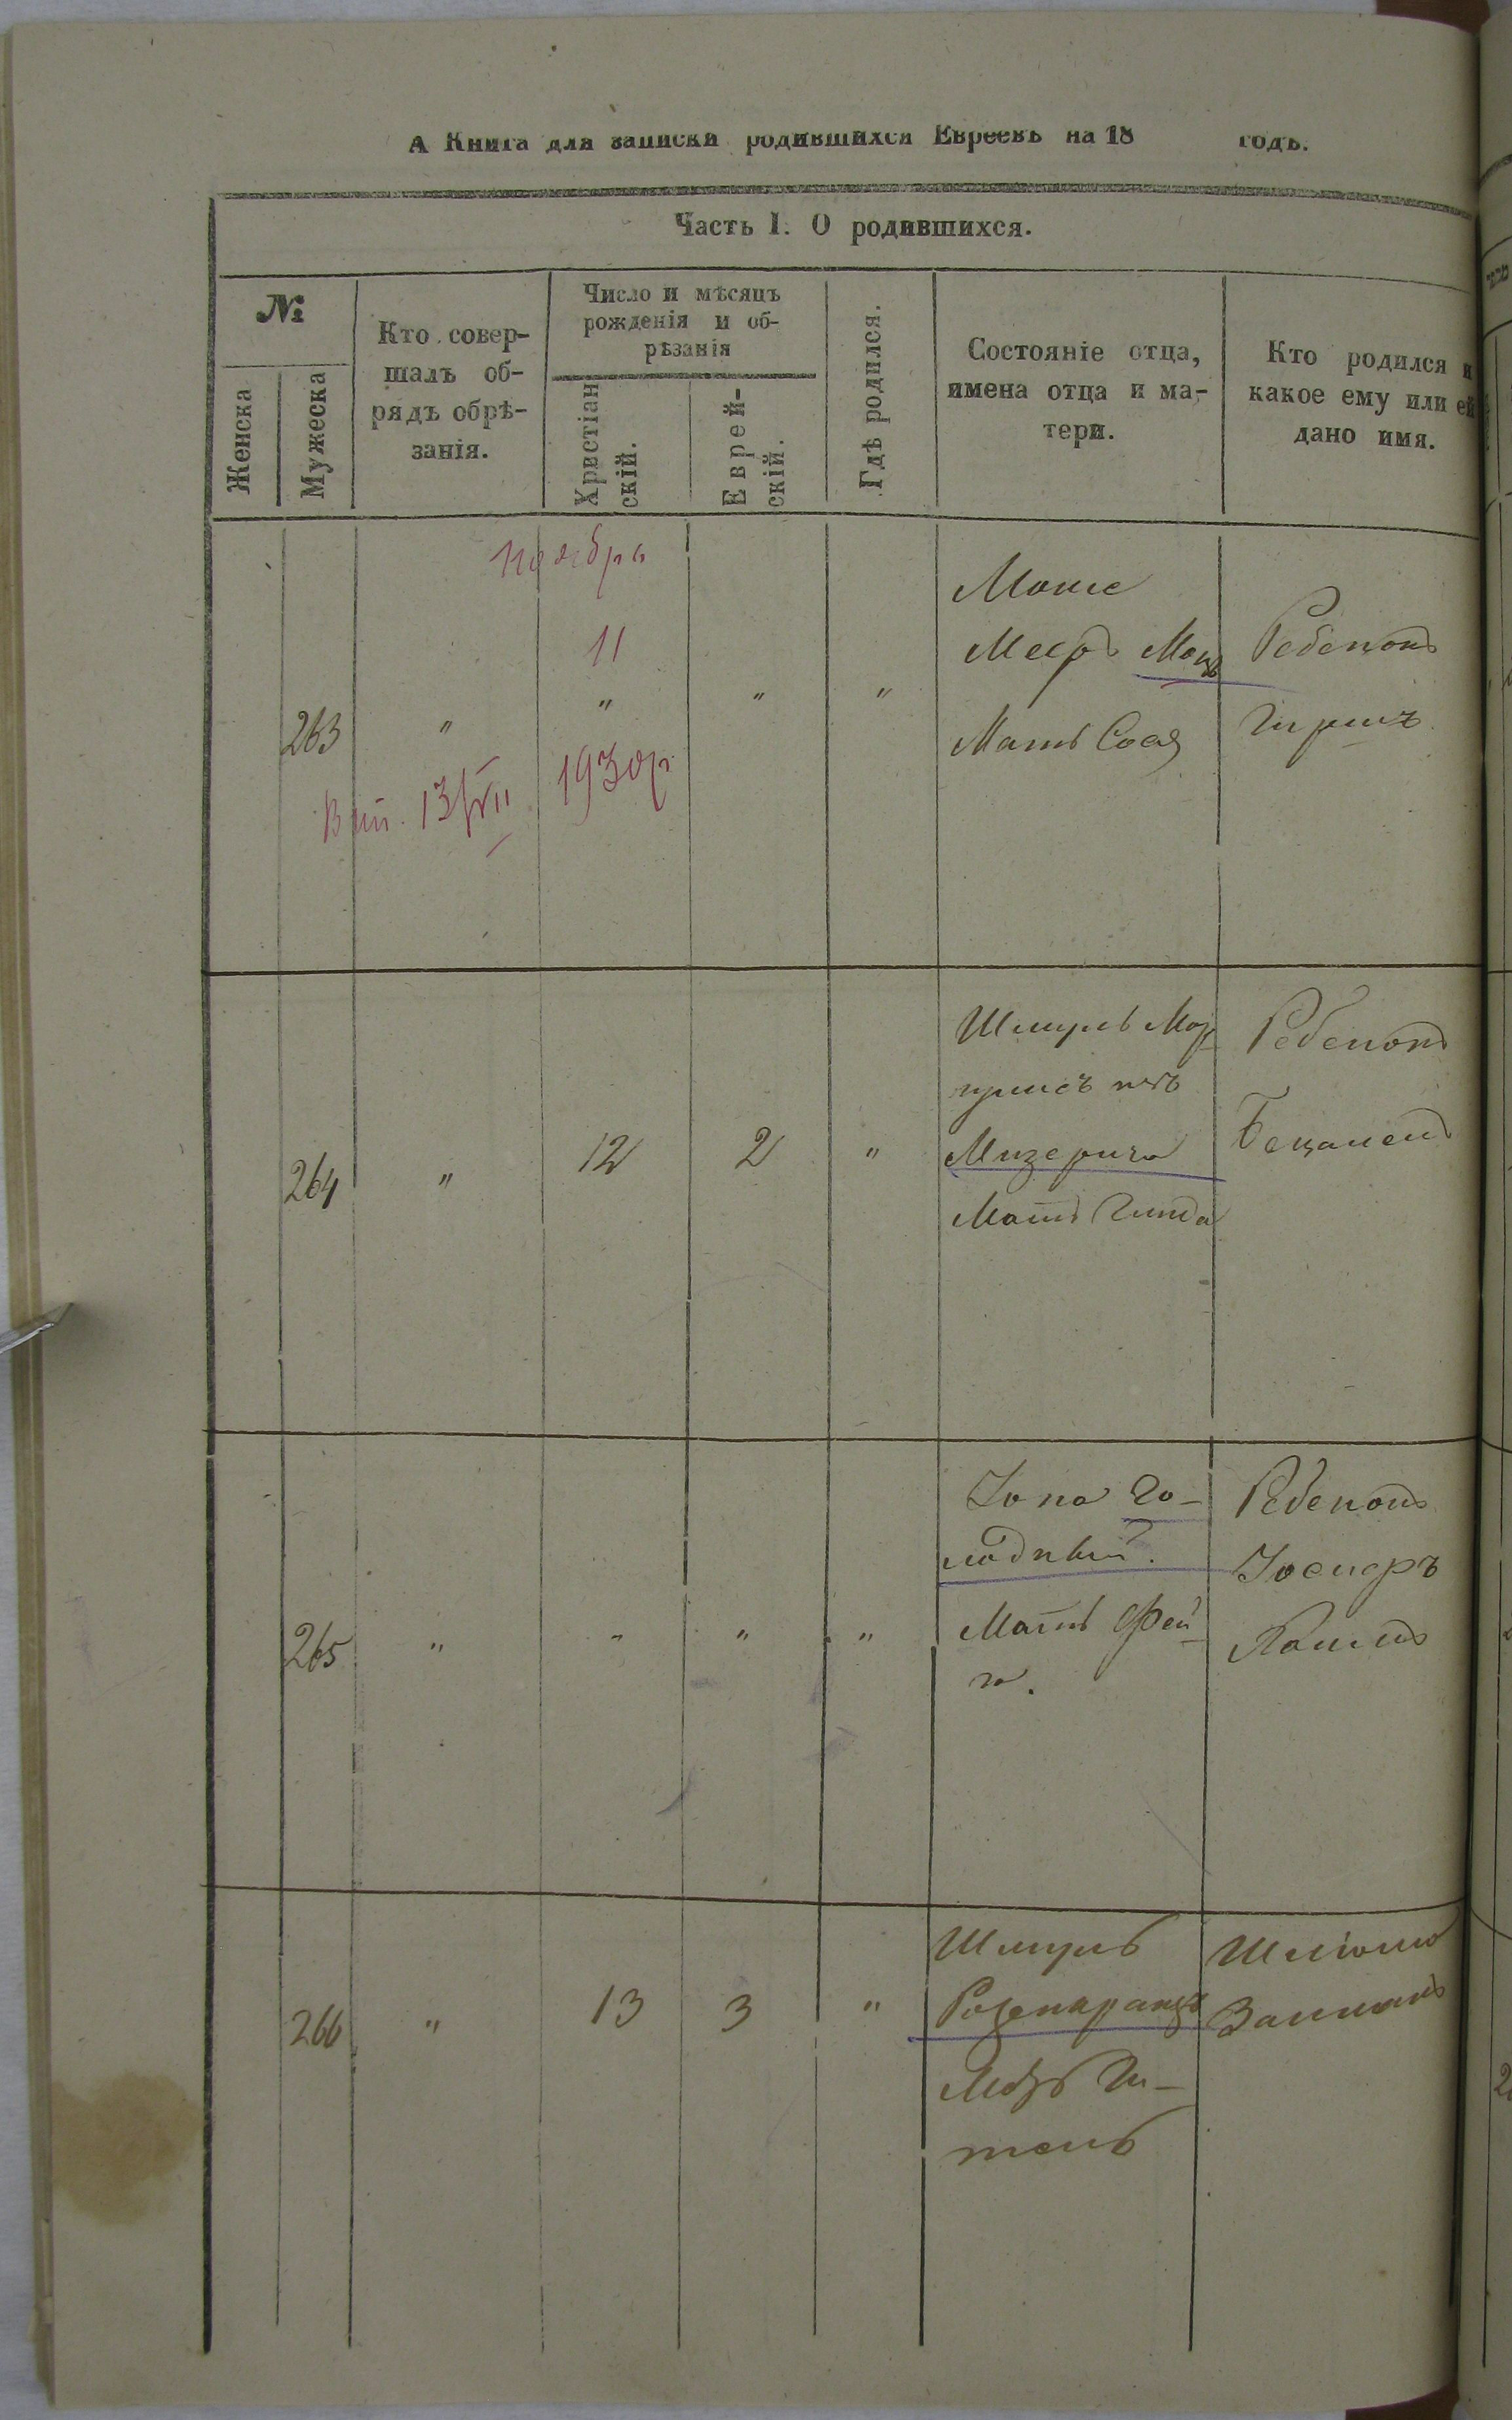 А Книга для записки родившихся Евреевъ на 18 годъ.
Часть I. О родившихся.
№
Женска
Мужеска
Кто совер-
шалъ об-
рядъ обрѣ-
занія.
Число и мѣсяцъ
рожденія и об-
рѣзанія
Христіан
скій.
Еврей-
скій.
Гдѣ родился.
Состояніе отца,
имена отца и ма-
тери.
Кто родился и
какое ему или ей
дано имя.
Ноября
263
"
11
"
"
"
13/VII 1930р
Моше
Мееръ
Мать Сося
Ребенокъ
Гиршъ
264
"
12
2
"
Шмуль Мор
Мизерича
Мать Гинда
Ребенокъ
Бецалель
265
"
"
"
"
Іона Го-
лодный.
Мать Фей
га.
Ребенокъ
266
"
13
3
"
Шмуль
Розенкранцъ
Мать Ги-
тель
Залманъ